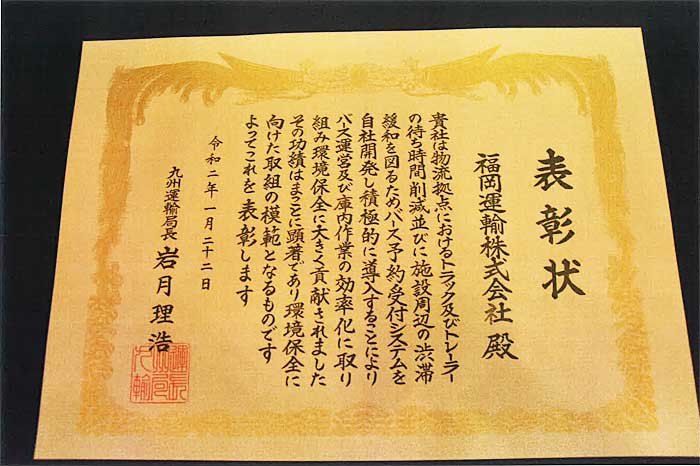 表彰状
福岡運輸株式会社 殿
貴社は物流拠点におけるトラック及びトレーラー
の待ち時間削減並びに施設周辺の渋滞
緩和を図るためバース予約受付システムを
自社開発し積極的に導入することにより
バース運営及び庫内作業の効率化に取り
組み環境保全に大きく貢献されました
その功績はまことに顕著であり環境保全に
向けた取組の模範となるものです
よってこれを表彰します
令和二年一月二十二日
九州運輸局長 岩月理浩